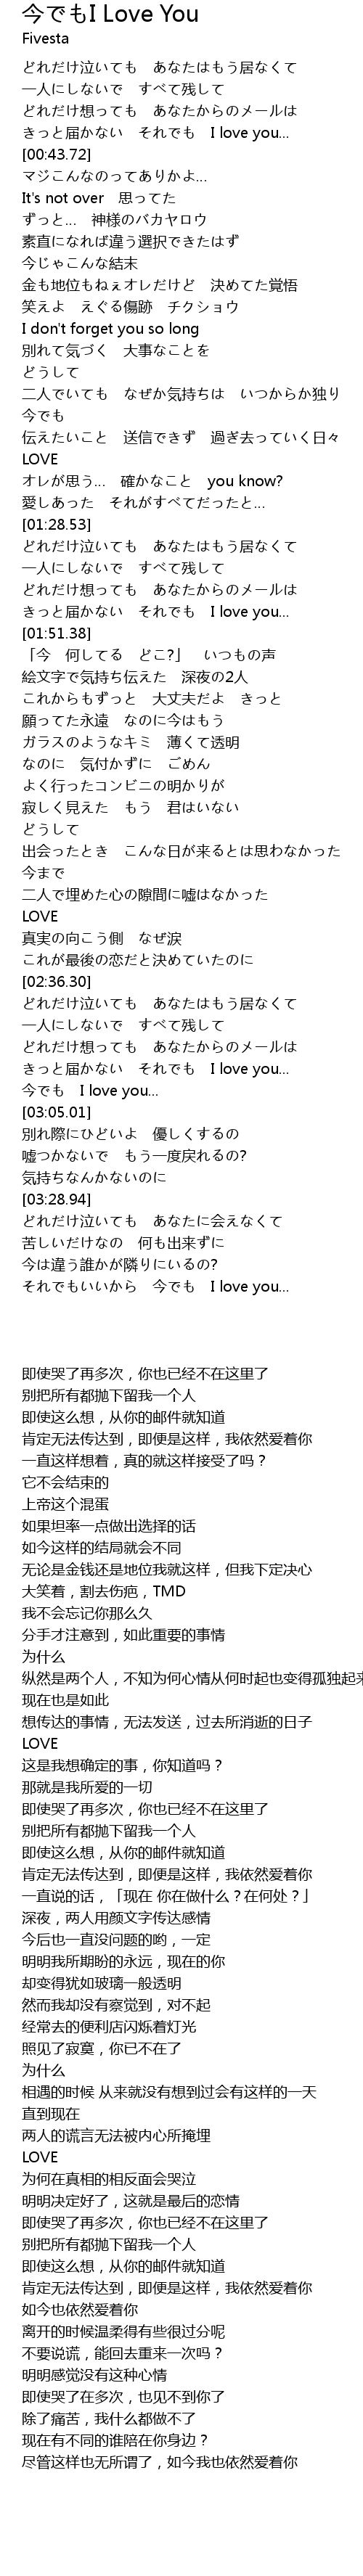 今でもI Love You
Fivesta
どれだけ泣いても　あなたはもう居なくて
一人にしないで　すべて残して
どれだけ想っても　あなたからのメールは
きっと届かない　それでも　I love you…
[00:43.72]
マジこんなのってありかよ…
It's not over　思ってた
ずっと…　神様のバカヤロウ
素直になれば違う選択できたはず
今じゃこんな結末
金も地位もねぇオレだけど　決めてた覚悟
笑えよ　えぐる傷跡　チクショウ
I don't forget you so long
別れて気づく　大事なことを
どうして
二人でいても　なぜか気持ちは　いつからか独り
今でも
伝えたいこと　送信できず　過ぎ去っていく日々
LOVE
オレが思う…　確かなこと　you know?
愛しあった　それがすべてだったと…
[01:28.53]
どれだけ泣いても　あなたはもう居なくて
一人にしないで　すべて残して
どれだけ想っても　あなたからのメールは
きっと届かない　それでも　I love you…
[01:51.38]
「今　何してる　どこ?」　いつもの声
絵文字で気持ち伝えた　深夜の2人
これからもずっと　大丈夫だよ　きっと
願ってた永遠　なのに今はもう
ガラスのようなキミ　薄くて透明
なのに　気付かずに　ごめん
よく行ったコンビニの明かりが
寂しく見えた　もう　君はいない
どうして
出会ったとき　こんな日が来るとは思わなかった
今まで
二人で埋めた心の隙間に嘘はなかった
LOVE
真実の向こう側　なぜ涙
これが最後の恋だと決めていたのに
[02:36.30]
どれだけ泣いても　あなたはもう居なくて
一人にしないで　すべて残して
どれだけ想っても　あなたからのメールは
きっと届かない　それでも　I love you…
今でも　I love you…
[03:05.01]
別れ際にひどいよ　優しくするの
嘘つかないで　もう一度戻れるの?
気持ちなんかないのに
[03:28.94]
どれだけ泣いても　あなたに会えなくて
苦しいだけなの　何も出来ずに
今は違う誰かが隣りにいるの?
それでもいいから　今でも　I love you…
即使哭了再多次，你也已经不在这里了
别把所有都抛下留我一个人
即使这么想，从你的邮件就知道
肯定无法传达到，即便是这样，我依然爱着你
一直这样想着，真的就这样接受了吗？
它不会结束的
上帝这个混蛋
如果坦率一点做出选择的话
如今这样的结局就会不同
无论是金钱还是地位我就这样，但我下定决心
大笑着，割去伤疤，TMD
我不会忘记你那么久
分手才注意到，如此重要的事情
为什么
纵然是两个人，不知为何心情从何时起也变得孤独起来
现在也是如此
想传达的事情，无法发送，过去所消逝的日子
LOVE
这是我想确定的事，你知道吗？
那就是我所爱的一切
即使哭了再多次，你也已经不在这里了
别把所有都抛下留我一个人
即使这么想，从你的邮件就知道
肯定无法传达到，即便是这样，我依然爱着你
一直说的话，「现在 你在做什么？在何处？」
深夜，两人用颜文字传达感情
今后也一直没问题的哟，一定
明明我所期盼的永远，现在的你
却变得犹如玻璃一般透明
然而我却没有察觉到，对不起
经常去的便利店闪烁着灯光
照见了寂寞，你已不在了
为什么
相遇的时候 从来就没有想到过会有这样的一天
直到现在
两人的谎言无法被内心所掩埋
LOVE
为何在真相的相反面会哭泣
明明决定好了，这就是最后的恋情
即使哭了再多次，你也已经不在这里了
别把所有都抛下留我一个人
即使这么想，从你的邮件就知道
肯定无法传达到，即便是这样，我依然爱着你
如今也依然爱着你
离开的时候温柔得有些很过分呢
不要说谎，能回去重来一次吗？
明明感觉没有这种心情
即使哭了在多次，也见不到你了
除了痛苦，我什么都做不了
现在有不同的谁陪在你身边？
尽管这样也无所谓了，如今我也依然爱着你